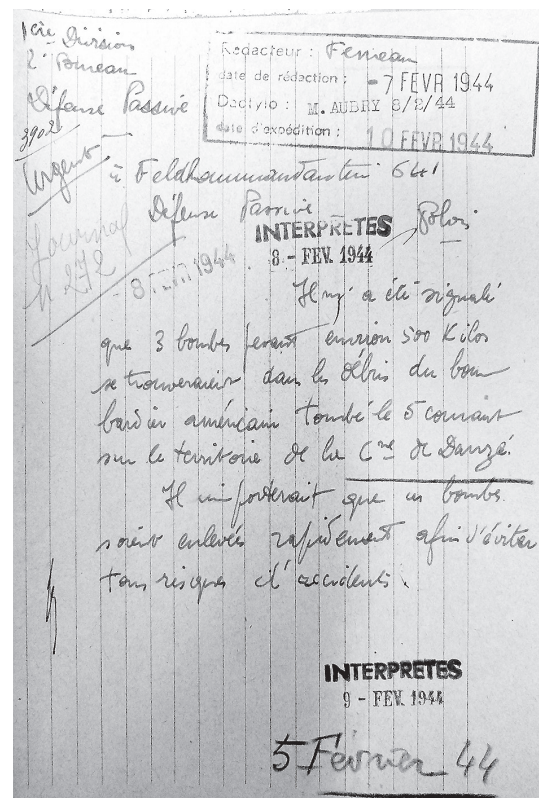 1ère Division
2e Bureau
Défense Passive
3902
Urgent
Journal
n 272
- 8 FEVR 1944
Rédacteur :
date de rédaction : - 7 FEVR 1944
Dactylo : M. AUBRY 8/2/44
date d'expédition : 10 FEVR 1944
à Feldkommandantur 641
Défense Passive
Blois
INTERPRETES
8 - FEV. 1944
Il m'a été signalé
que 3 bombes pesant environ 500 Kilos
se trouveraient dans les débris du bom-
bardier américain tombé le 5 courant
sur le territoire de la Cne de Danzé.
Il importerait que ces bombes
soient enlevées rapidement afin d'éviter
tous risques d'accidents.
INTERPRETES
9 - FEV. 1944
5 Février 44